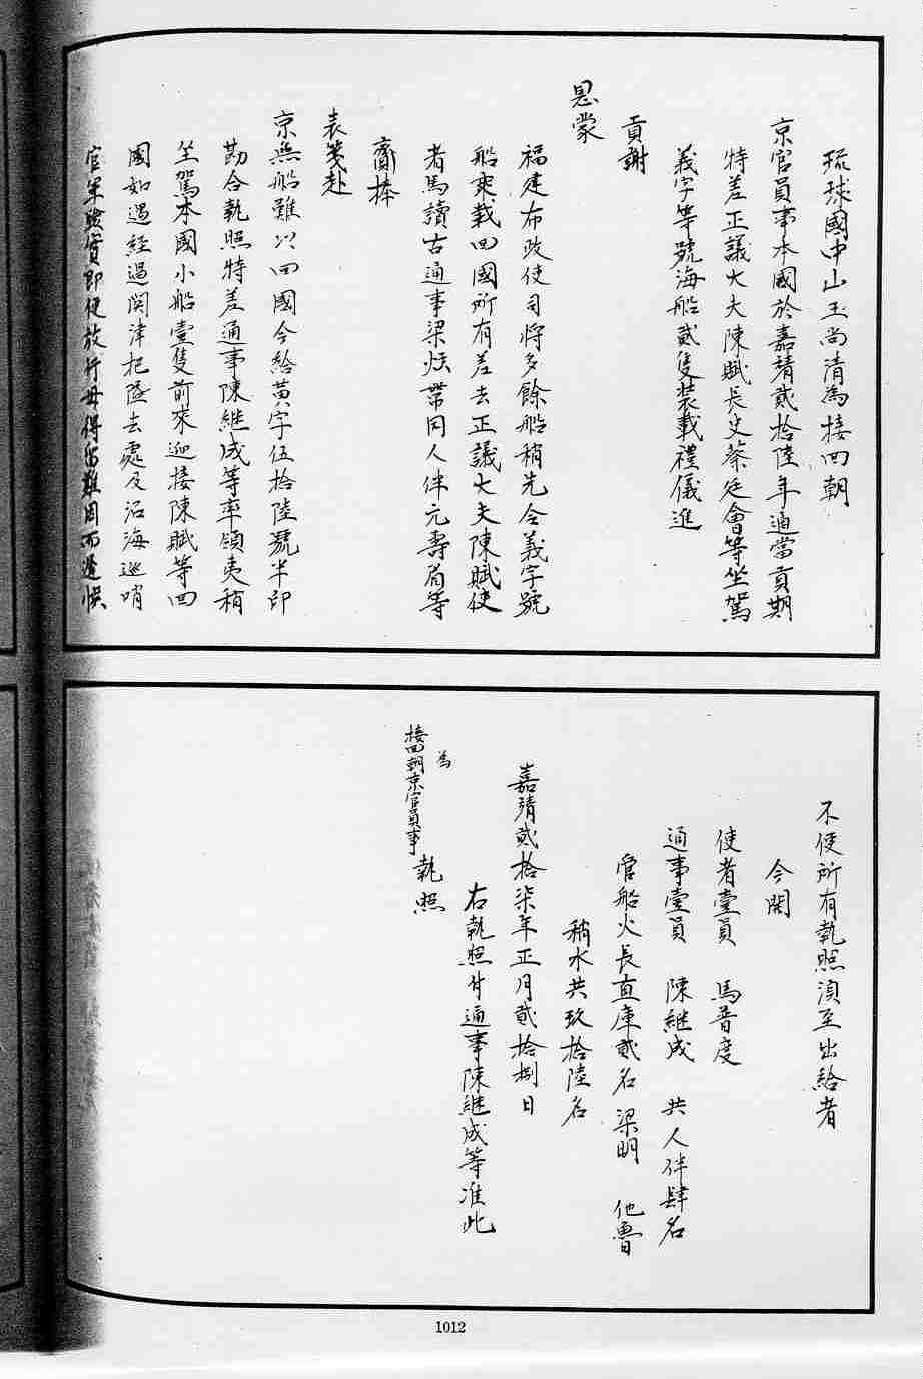 琉球國中山王尚清為接回朝
京官員事本國於嘉靖貳拾陸年適當貢期
特差正議大夫陳賦長史蔡廷會等坐駕
義字等號海船貳隻裝載禮儀進
貢謝
恩蒙
福建布政使司將多餘船稍先令義字號
船爽載回國所有差去正議大夫陳賦使
者馬讀古通事梁炫帶同人伴元壽眉等
齎捧
表箋赴
京無船難以回國今給黃字伍拾陸號半印
勘合執照特差通事陳継成等率領夷稍
坐駕本國小船壹隻前來迎接陳賦等回
國如遇経過関津把隘去處及沿海巡哨
官軍驗實即便放行毋得留難因而遲悞
不便所有執照湏至出給者
今開
使者壹員 馬普度
通事壹員 陳継成 共人伴肆名
管船火長直庫貳名 梁明 他魯
稍水共玖拾陸名
嘉靖貳拾柒年正月貳拾捌日
右執照付通事陳継成等准此
為
接回朝京官員事 執照
1012